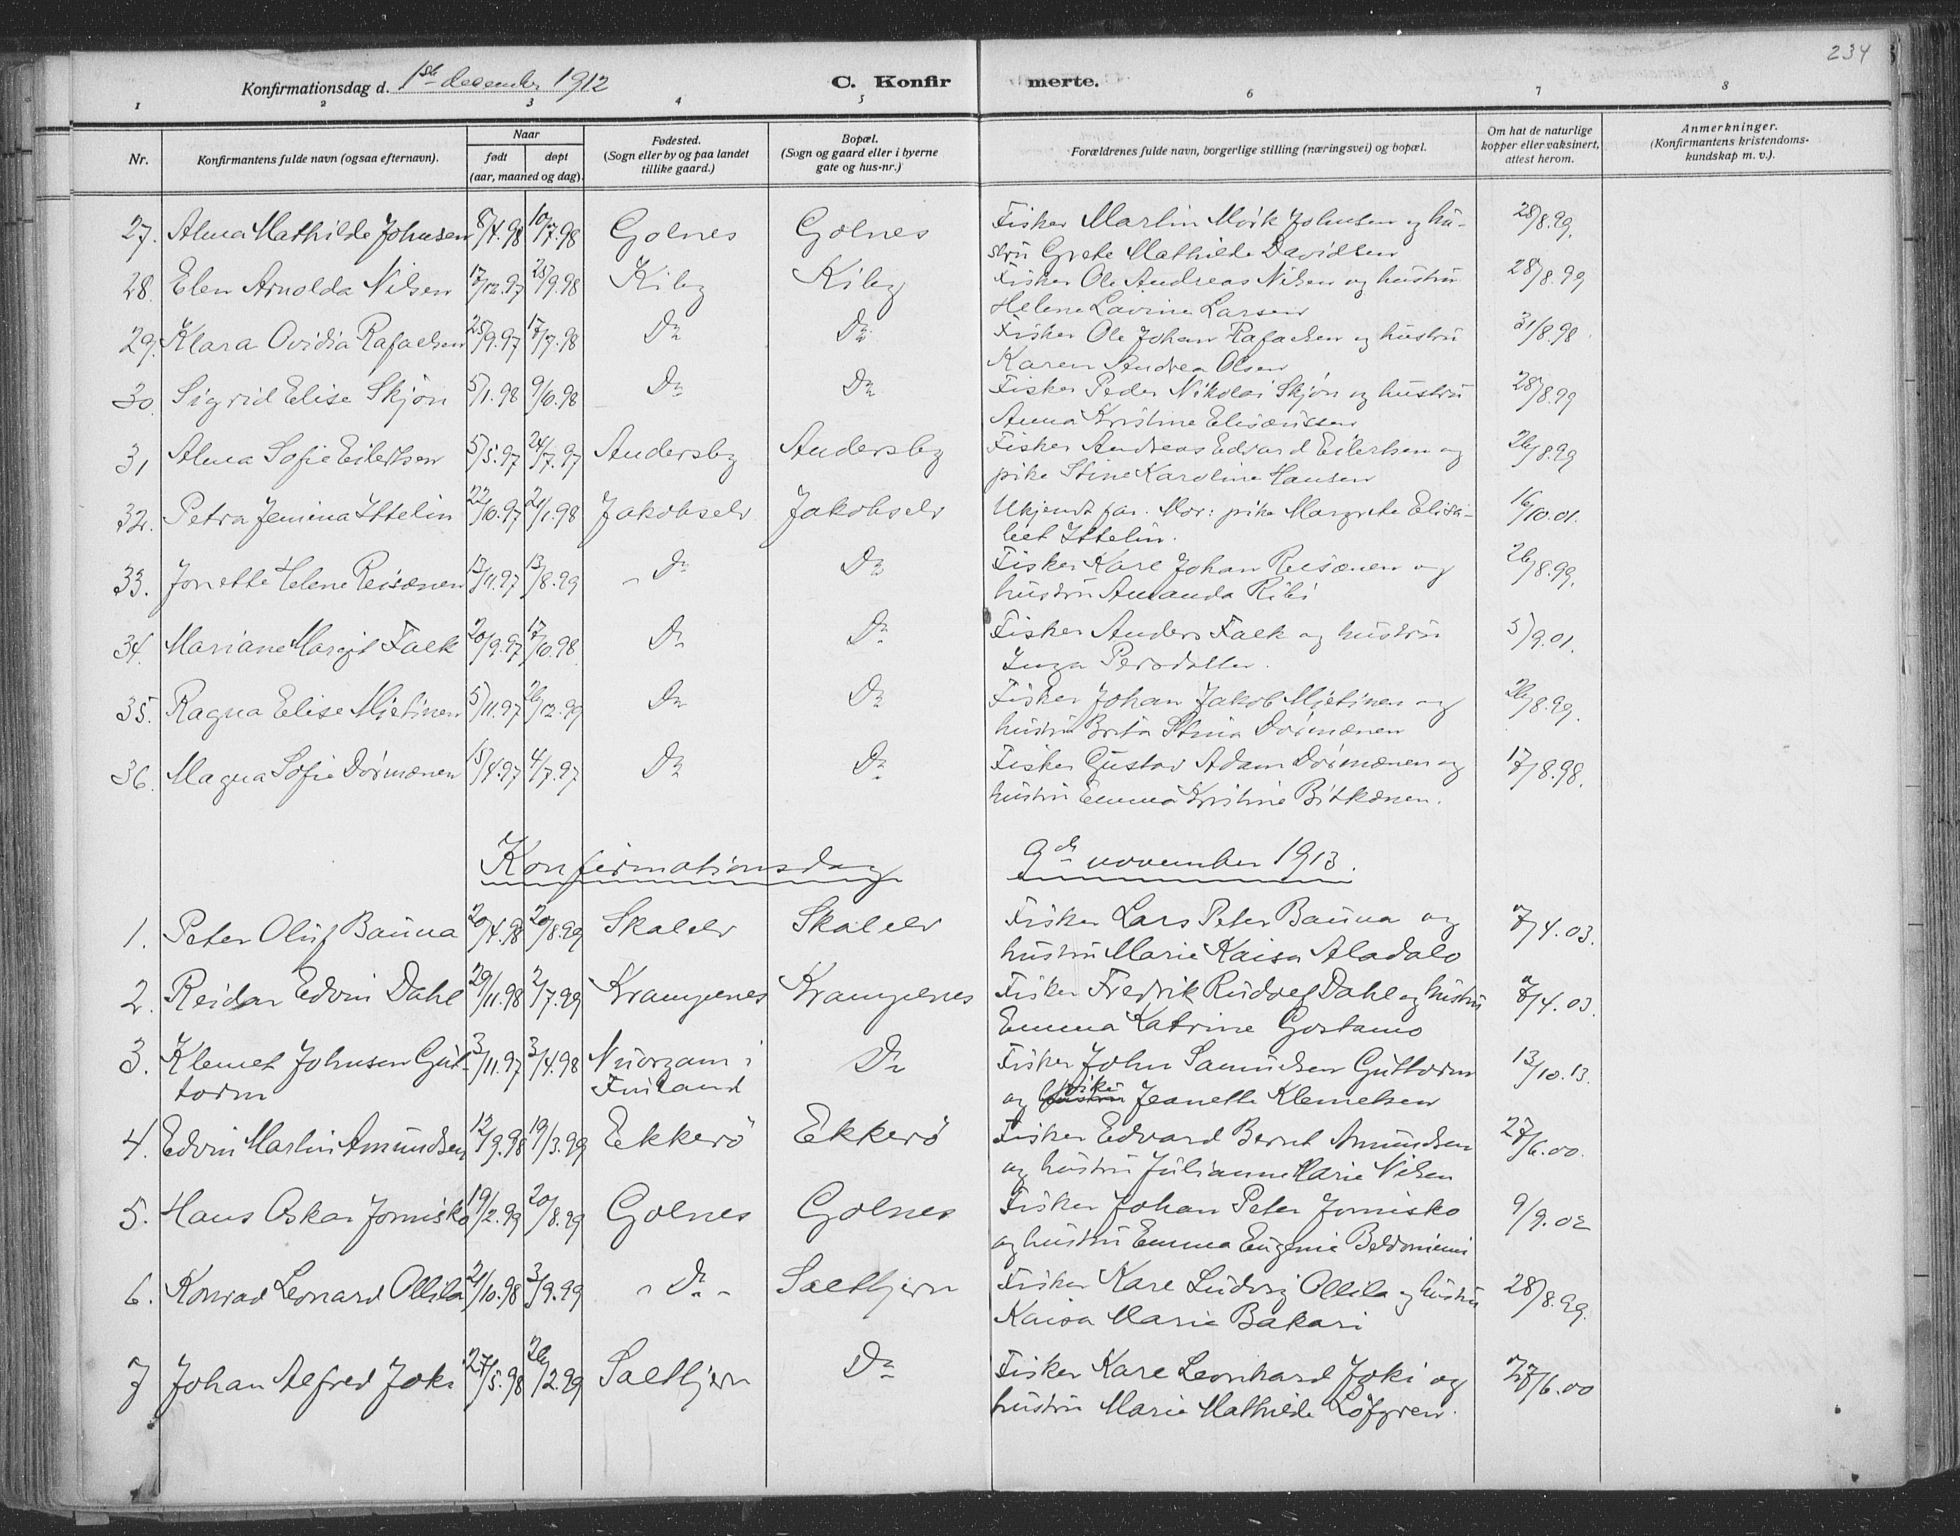 234
Konfirmationsdag d. 1ste december 1912 C. Konfirmerte.
1 2 3 4 5 6 7 8
Nr. Konfirmantens fulde navn (ogsaa efternavn). Naar født døpt (aar, maaned og dag). Fødested. (Sogn eller by og paa landet tillike gaard.) Bopæl. (Sogn og gaard eller i byerne gate og hus-nr.) Forældrenes fulde navn, borgerlige stilling (næringsvei) og bopæl. Om hat de naturlige kopper eller vaksinert, attest herom. Anmerkninger. (Konfirmantens kristendomskundskap m. v.).
27. Alma Mathilde Johnsen 8/4.98 10/7.98 Golnes Golnes Fisker Martin Mørk Johnsen og hu- 28/8.99.
stru Grete Mathilde Davidsen
28. Elen Arnolda Nilsen 17/12.97 25/9.98 Kiby Kiby Fisker Ole Andreas Nilsen og hustru 28/8.99
Helene Lavine Larsen
29. Klara Ovidia Rafaelsen 25/9.97 17/7.98 Do Do Fisker Ole Johan Rafaelsen og hustru 31/8.98
Karen Andrea Olsen
30. Sigrid Elise Skjøn 5/1.98 9/10.98 Do Do Fisker Peder Nikolai Skjøn og hustru 28/8.99
Anna Kristine Eliseussen
31 Alma Sofie Eilertsen 5/5.97 24/7.97 Andersby Andersby Fisker Andreas Edvard Eilertsen og 26/8.99
pike Stine Karoline Hansen
32. Petra Jemina Ittelin 22/10.97 21/1.98 Jakobselv Jakobselv Ukjendt far. Mor: pike Margrete Elisa- 16/10.01.
bet Ittelin.
33. Jonette Helene Reisænen 12/11.97 13/8.99 Do Do Fisker Karl Johan Reisænen og 26/8.99.
hustru Amanda Ribi
34. Mariane Margit Falk 20/9.97 17/10.98 Do Do Fisker Anders Falk og hustru 5/9.01.
Inga Persdatter.
35. Ragna Elise Mietinen 5/11.97 26/12.99 Do Do Fisker Johan Jakob Mietinen og 26/8.99.
hustru Brita Stina Dørmænen
36. Magna Sofie Dørmænen 15/4.97 4/7.97 Do Do Fisker Gustav Adam Dørmænen og 17/8.98.
hustru Emma Kristine Bitkænen.
Konfirmationsdag 9de november 1913.
1. Peter Oluf Bauna 20/4.98 20/8.99 Skalelv Skalelv Fisker Lars Peter Bauna og 7/4.03.
hustru Marie Kaisa Aladalo
2. Reidar Edvin Dahl 29/11.98 2/7.99 Krampenes Krampenes Fisker Fredrik Rudolf Dahl og hustru 7/4.03.
Emma Katrine Gostamo
3. Klemet Johnsen Gut- 3/11.97 3/4.98 Nuorgam i Do Fisker John Samuelsen Guttorm 13/10.13.
torm Finland og hustru pike Jeanette Klemetsen
4. Edvin Martin Amundsen 12/9.98 19/3.99 Ekkerö Ekkerö Fisker Edvard Bernt Amundsen 27/6.00.
og hustru Julianne Marie Nilsen
5. Hans Oskar Jornisko 19/2.99 20/8.99 Golnes Golnes Fisker Johan Peter Jornisko 9/9.02
og hustru Emma Eugenie Beldoniemi
6. Konrad Leonard Ollila 21/10.98 3/9.99 Do Saltbjern Fisker Karl Ludvig Ollila og hustru 28/8.99.
Kaisa Marie Bakari
7 Johan Alfred Joki 27/5.98 26/12.99 Saltbjern Do Fisker Karl Leonhard Joki og 27/6.00
hustru Marie Mathilde Løfgren.